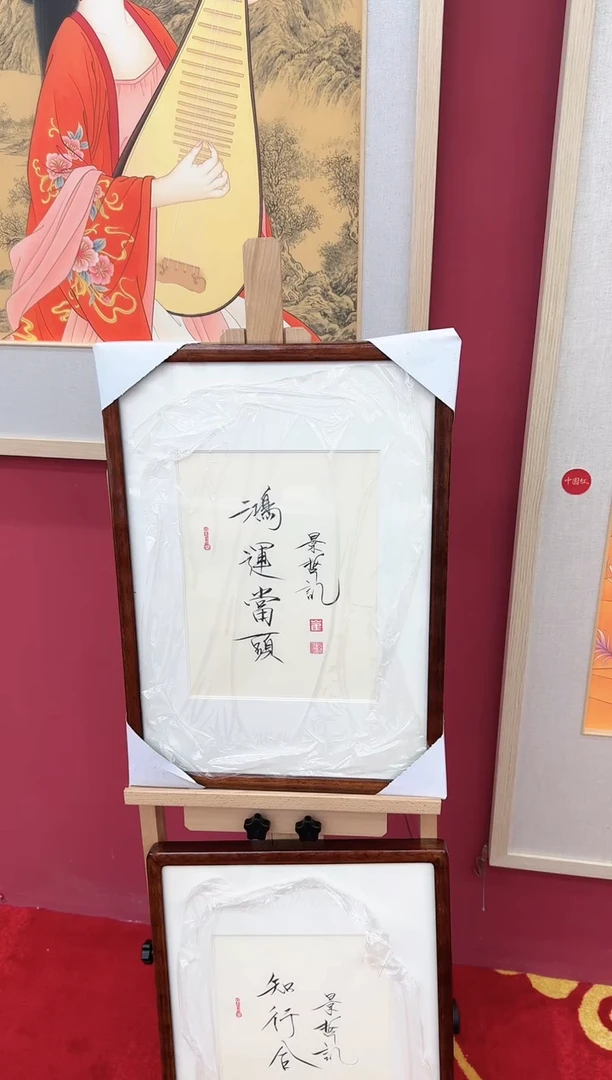 鴻運當頭
景哲記
中国红
知行合
景哲記